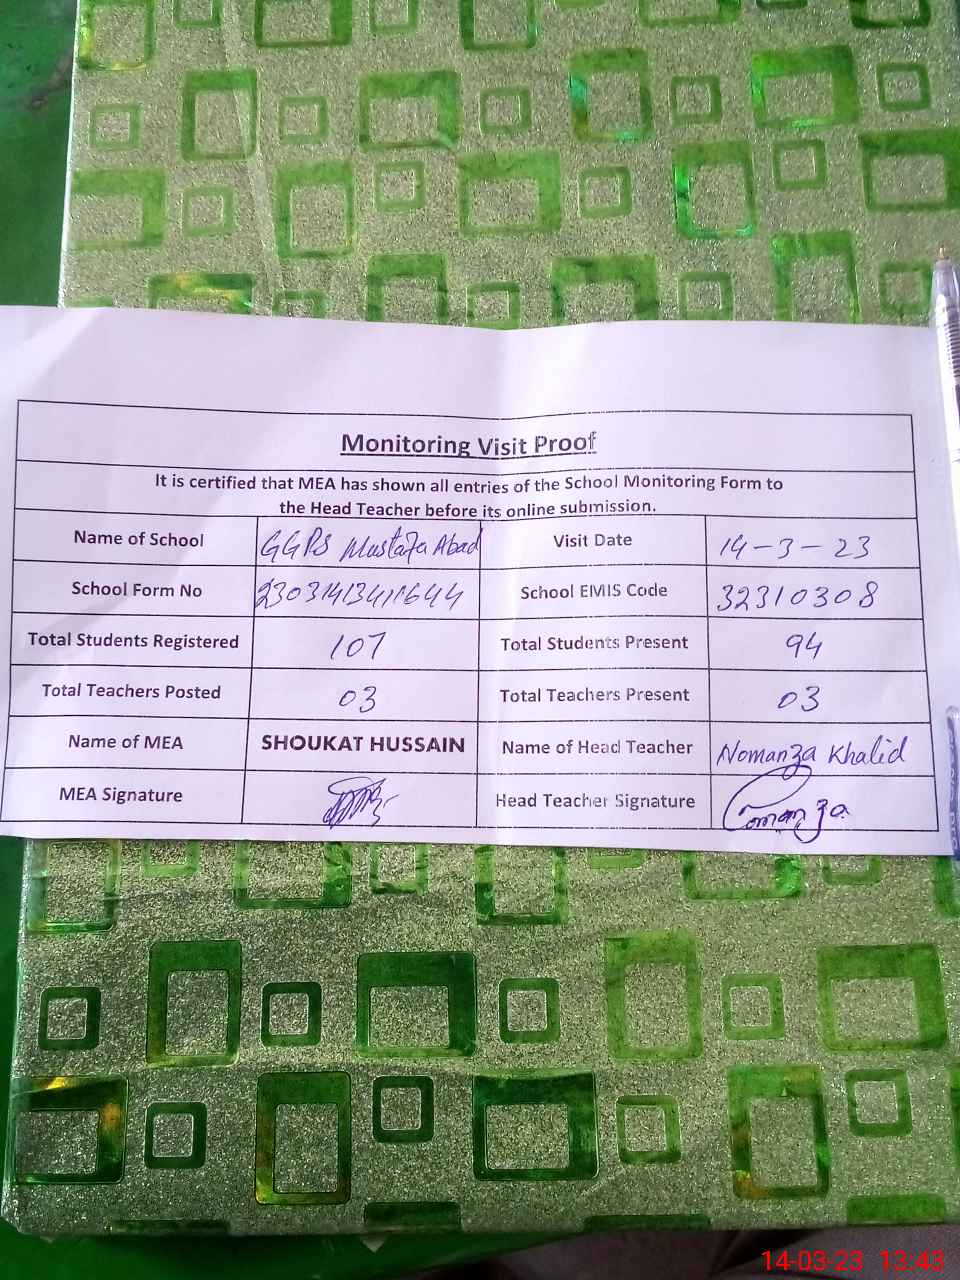 Monitoring Visit Proof
It is certified that MEA has shown all entries of the School Monitoring Form to
the Head Teacher before its online submission.
Name of School GGPS Mustafa Abad Visit Date 14-3-23
School Form No 23031413411644 School EMIS Code 32310308
Total Students Registered 107 Total Students Present 94
Total Teachers Posted 03 Total Teachers Present 03
Name of MEA SHOUKAT HUSSAIN Name of Head Teacher Nomanza Khalid
MEA Signature Head Teacher Signature
14-03-23 13:43